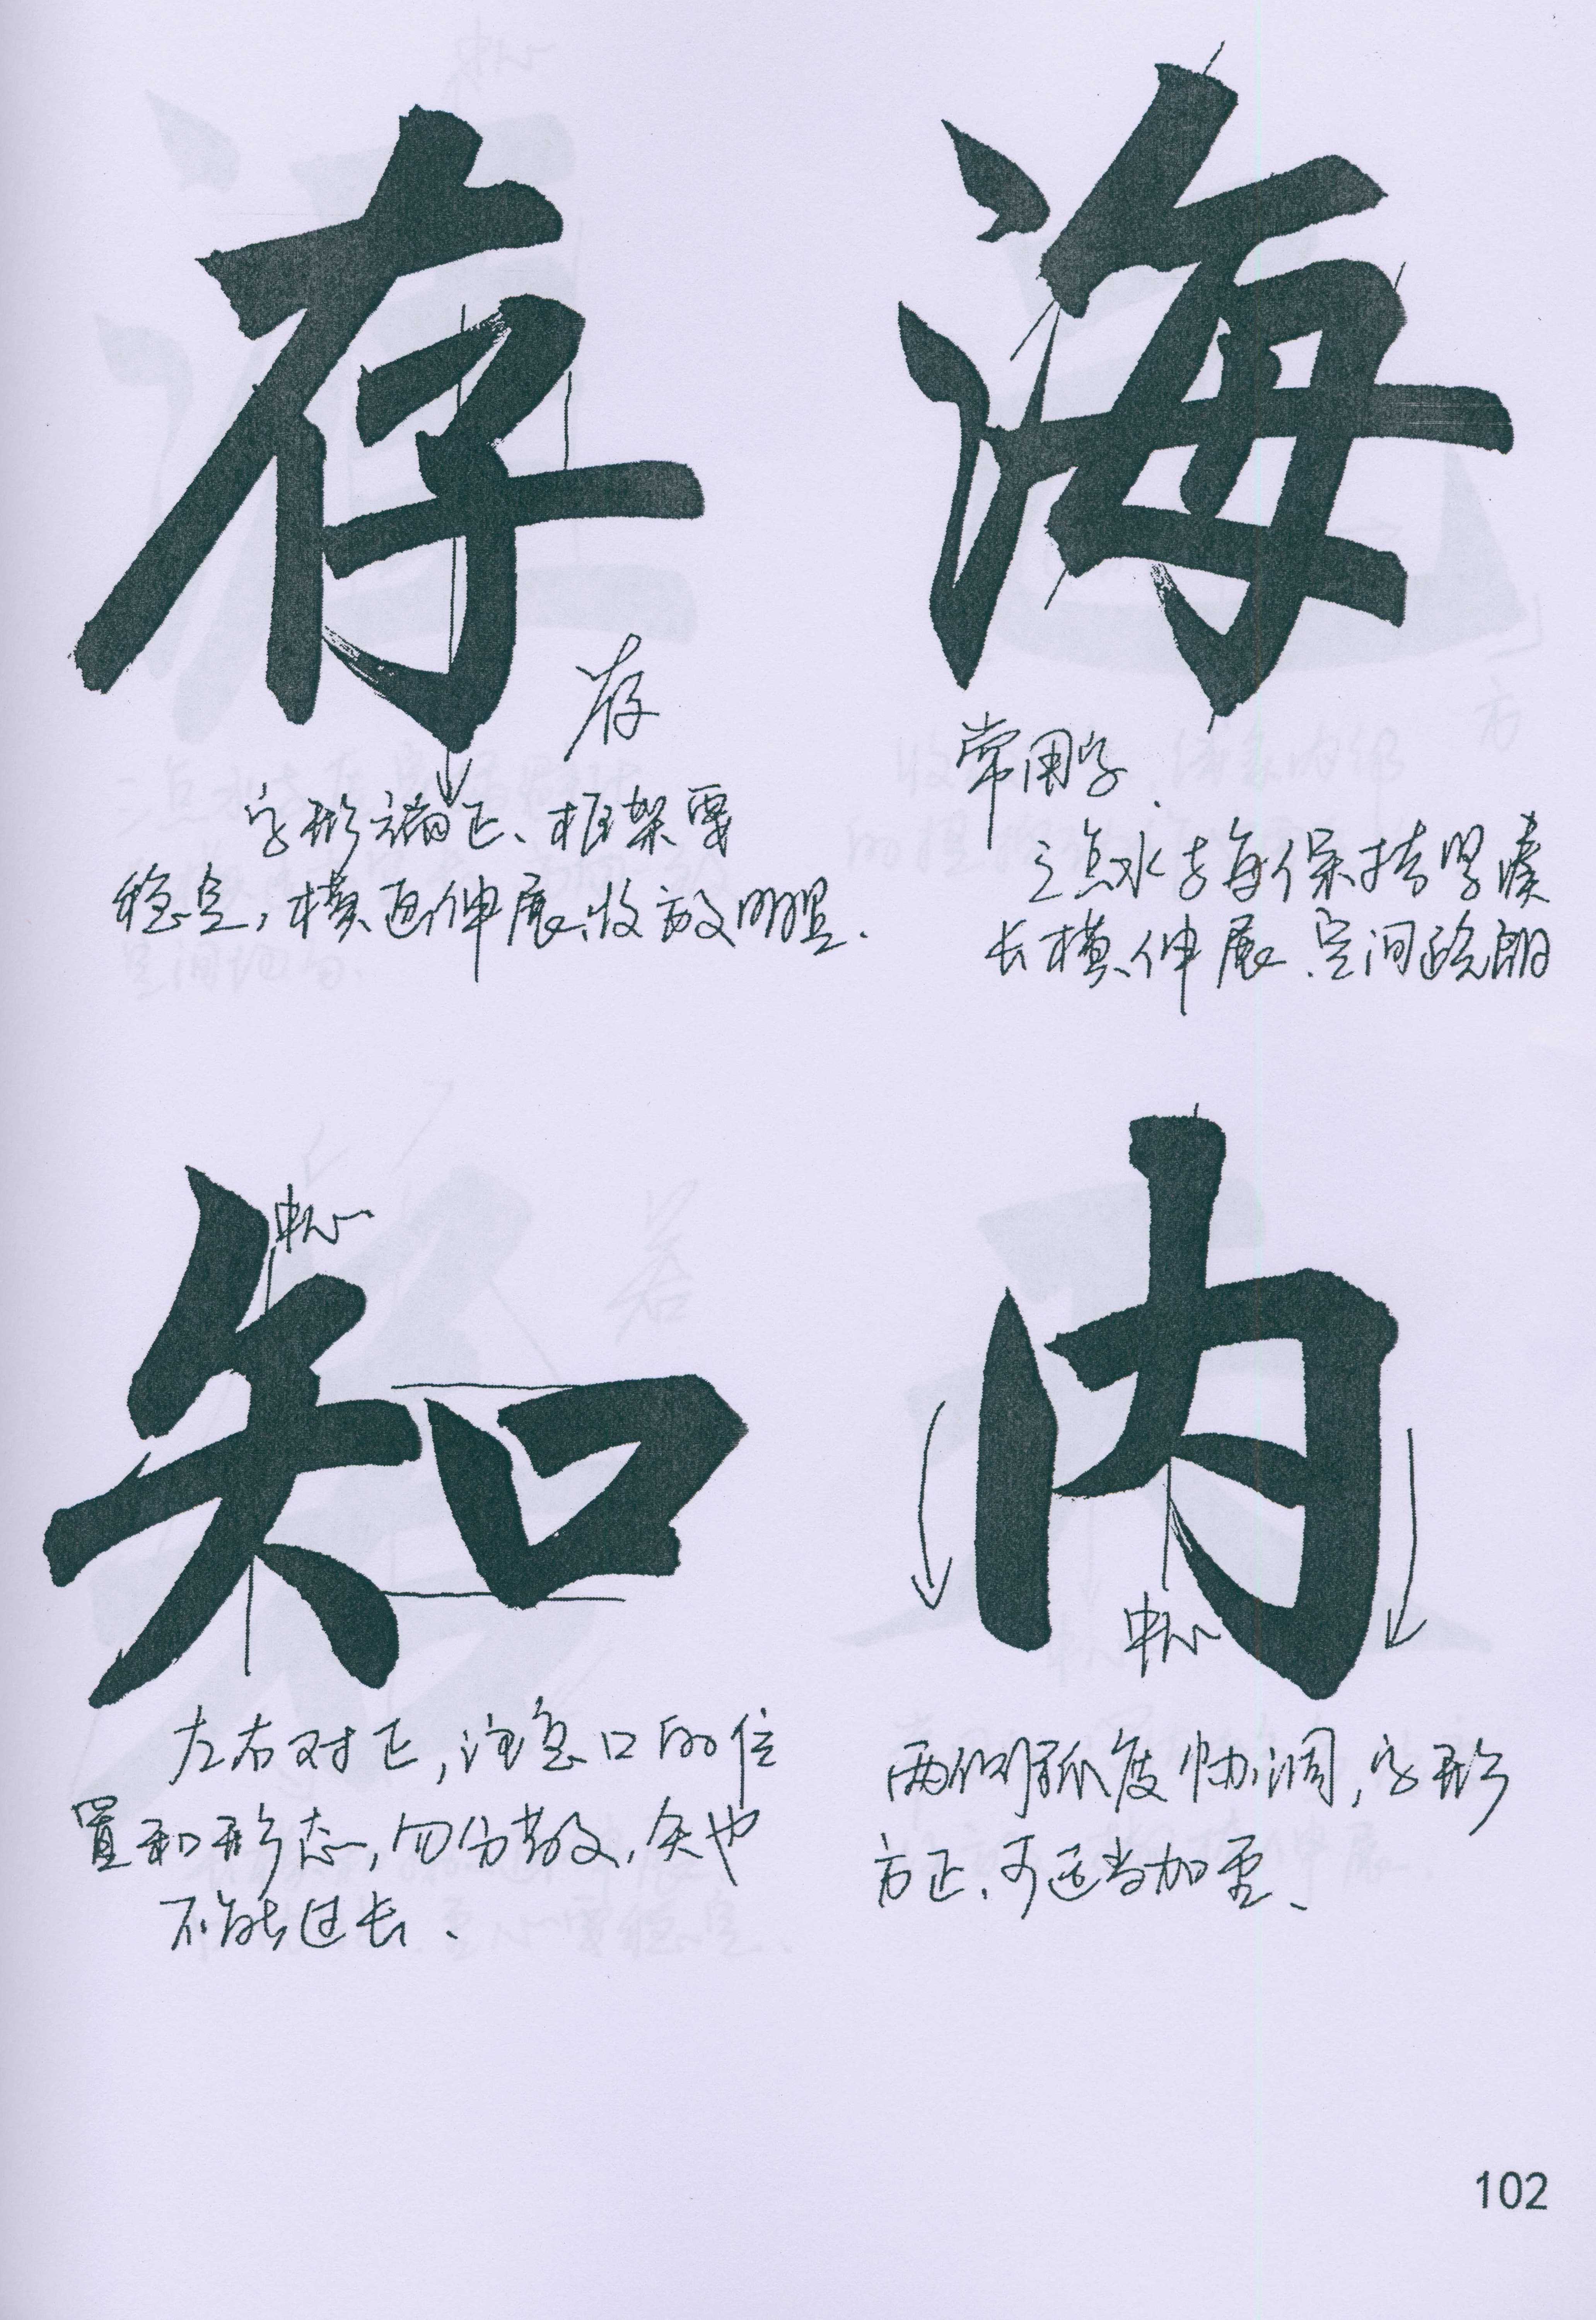 存
存
字形端正、框架要
稳定,横画伸展、收放明显.
海
常用字.
三点水与每保持紧凑
长横伸展.空间疏朗
知
中心
左右对正,注意口的位
置和形态,勿分散.矢也
不能过长.
内
中心
两侧弧度协调,字形
方正.可适当加重、
102